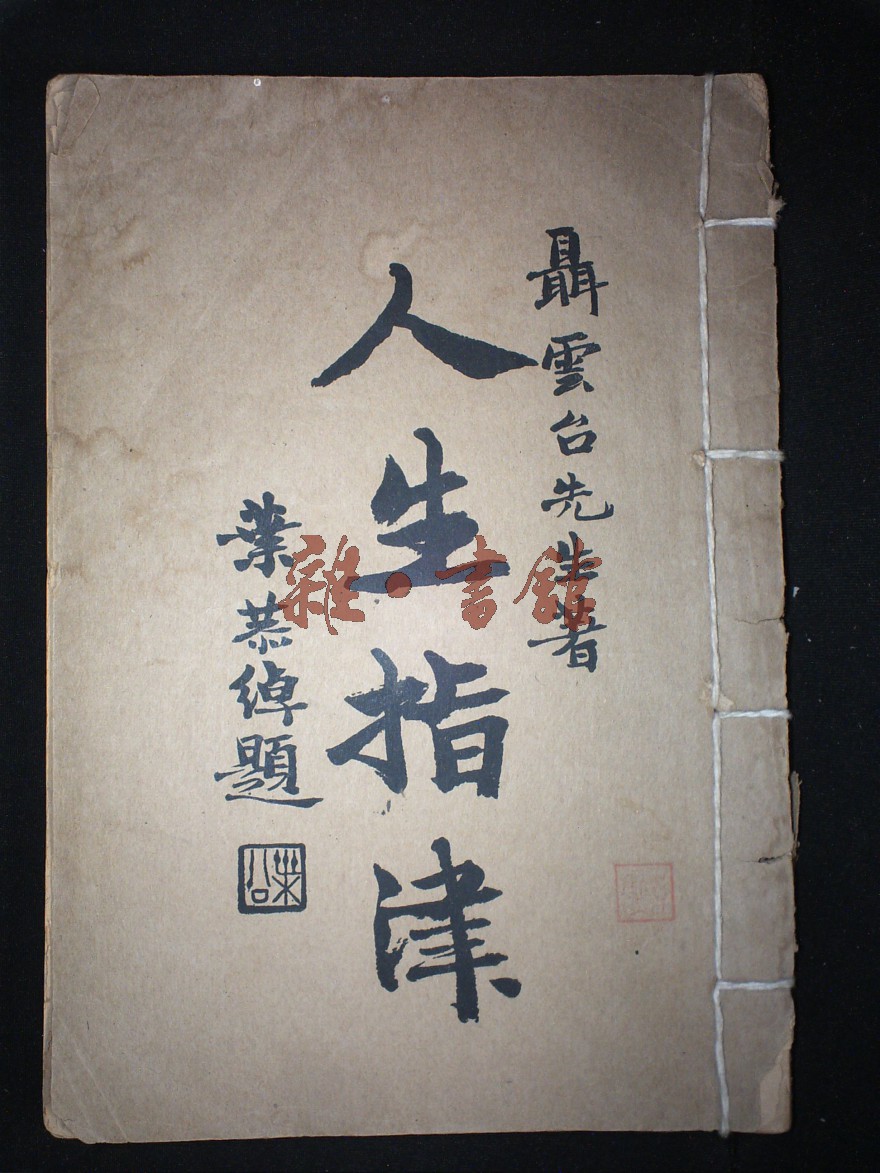 聶雲台先生著
人生指津
葉恭綽題
雜·書館